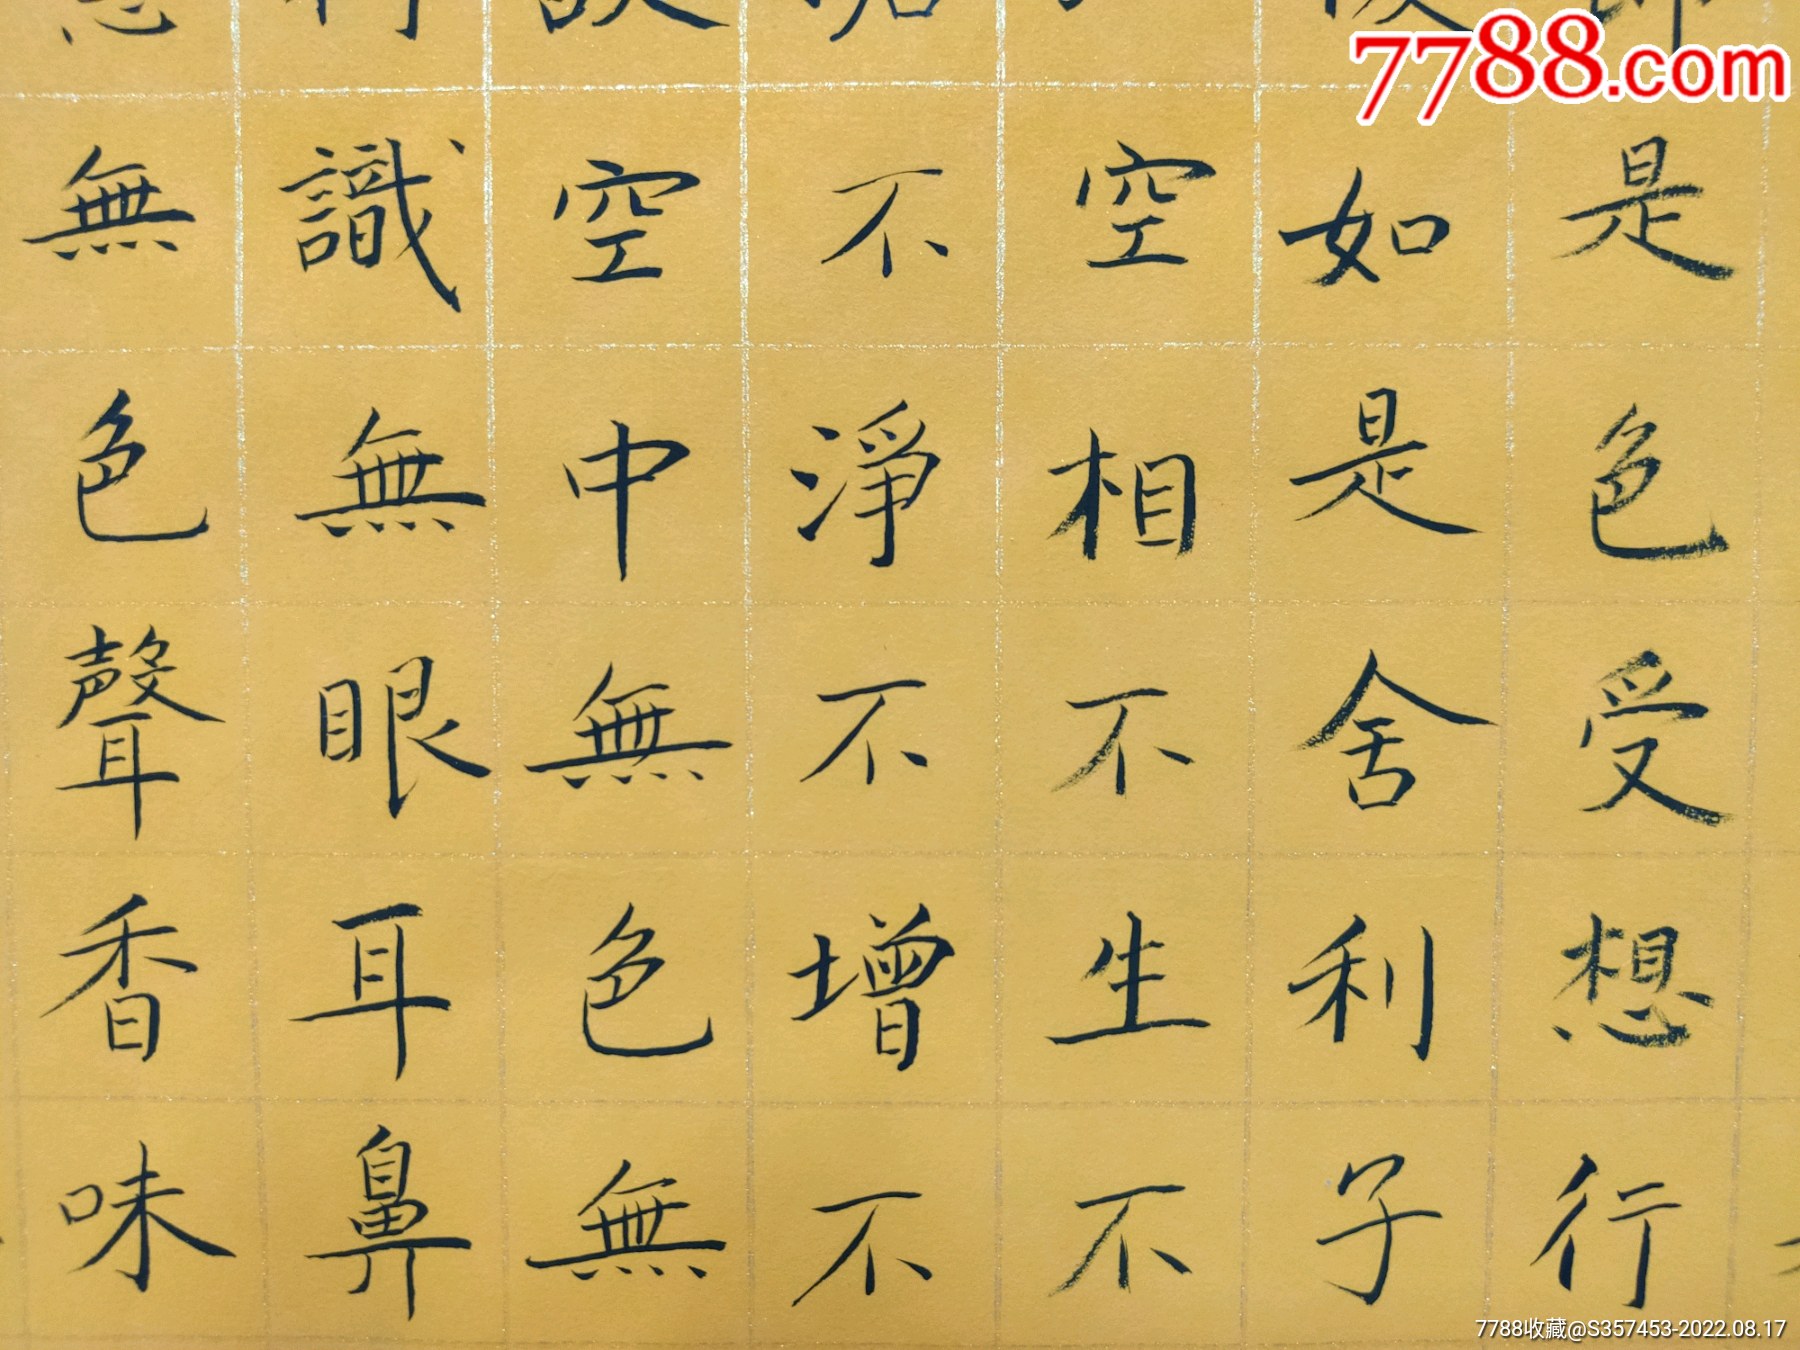 是色受想行
如是舍利子
空相不生不
不淨不增不
空中無色無
識無眼耳鼻
無色聲香味
7788.com
7788收藏@S357453-2022.08.17